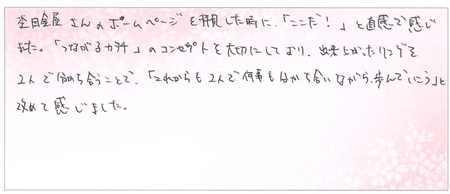 杢目金屋さんのホームページを拝見した時に、「ここだ!」と直感で感じ
ました。「つながるカタチ」のコンセプトを大切にしており、出来上がったリングを
2人で分かち合うことで、「これからも2人で何事も分かち合いながら、歩んでいこう」と
改めて感じました。